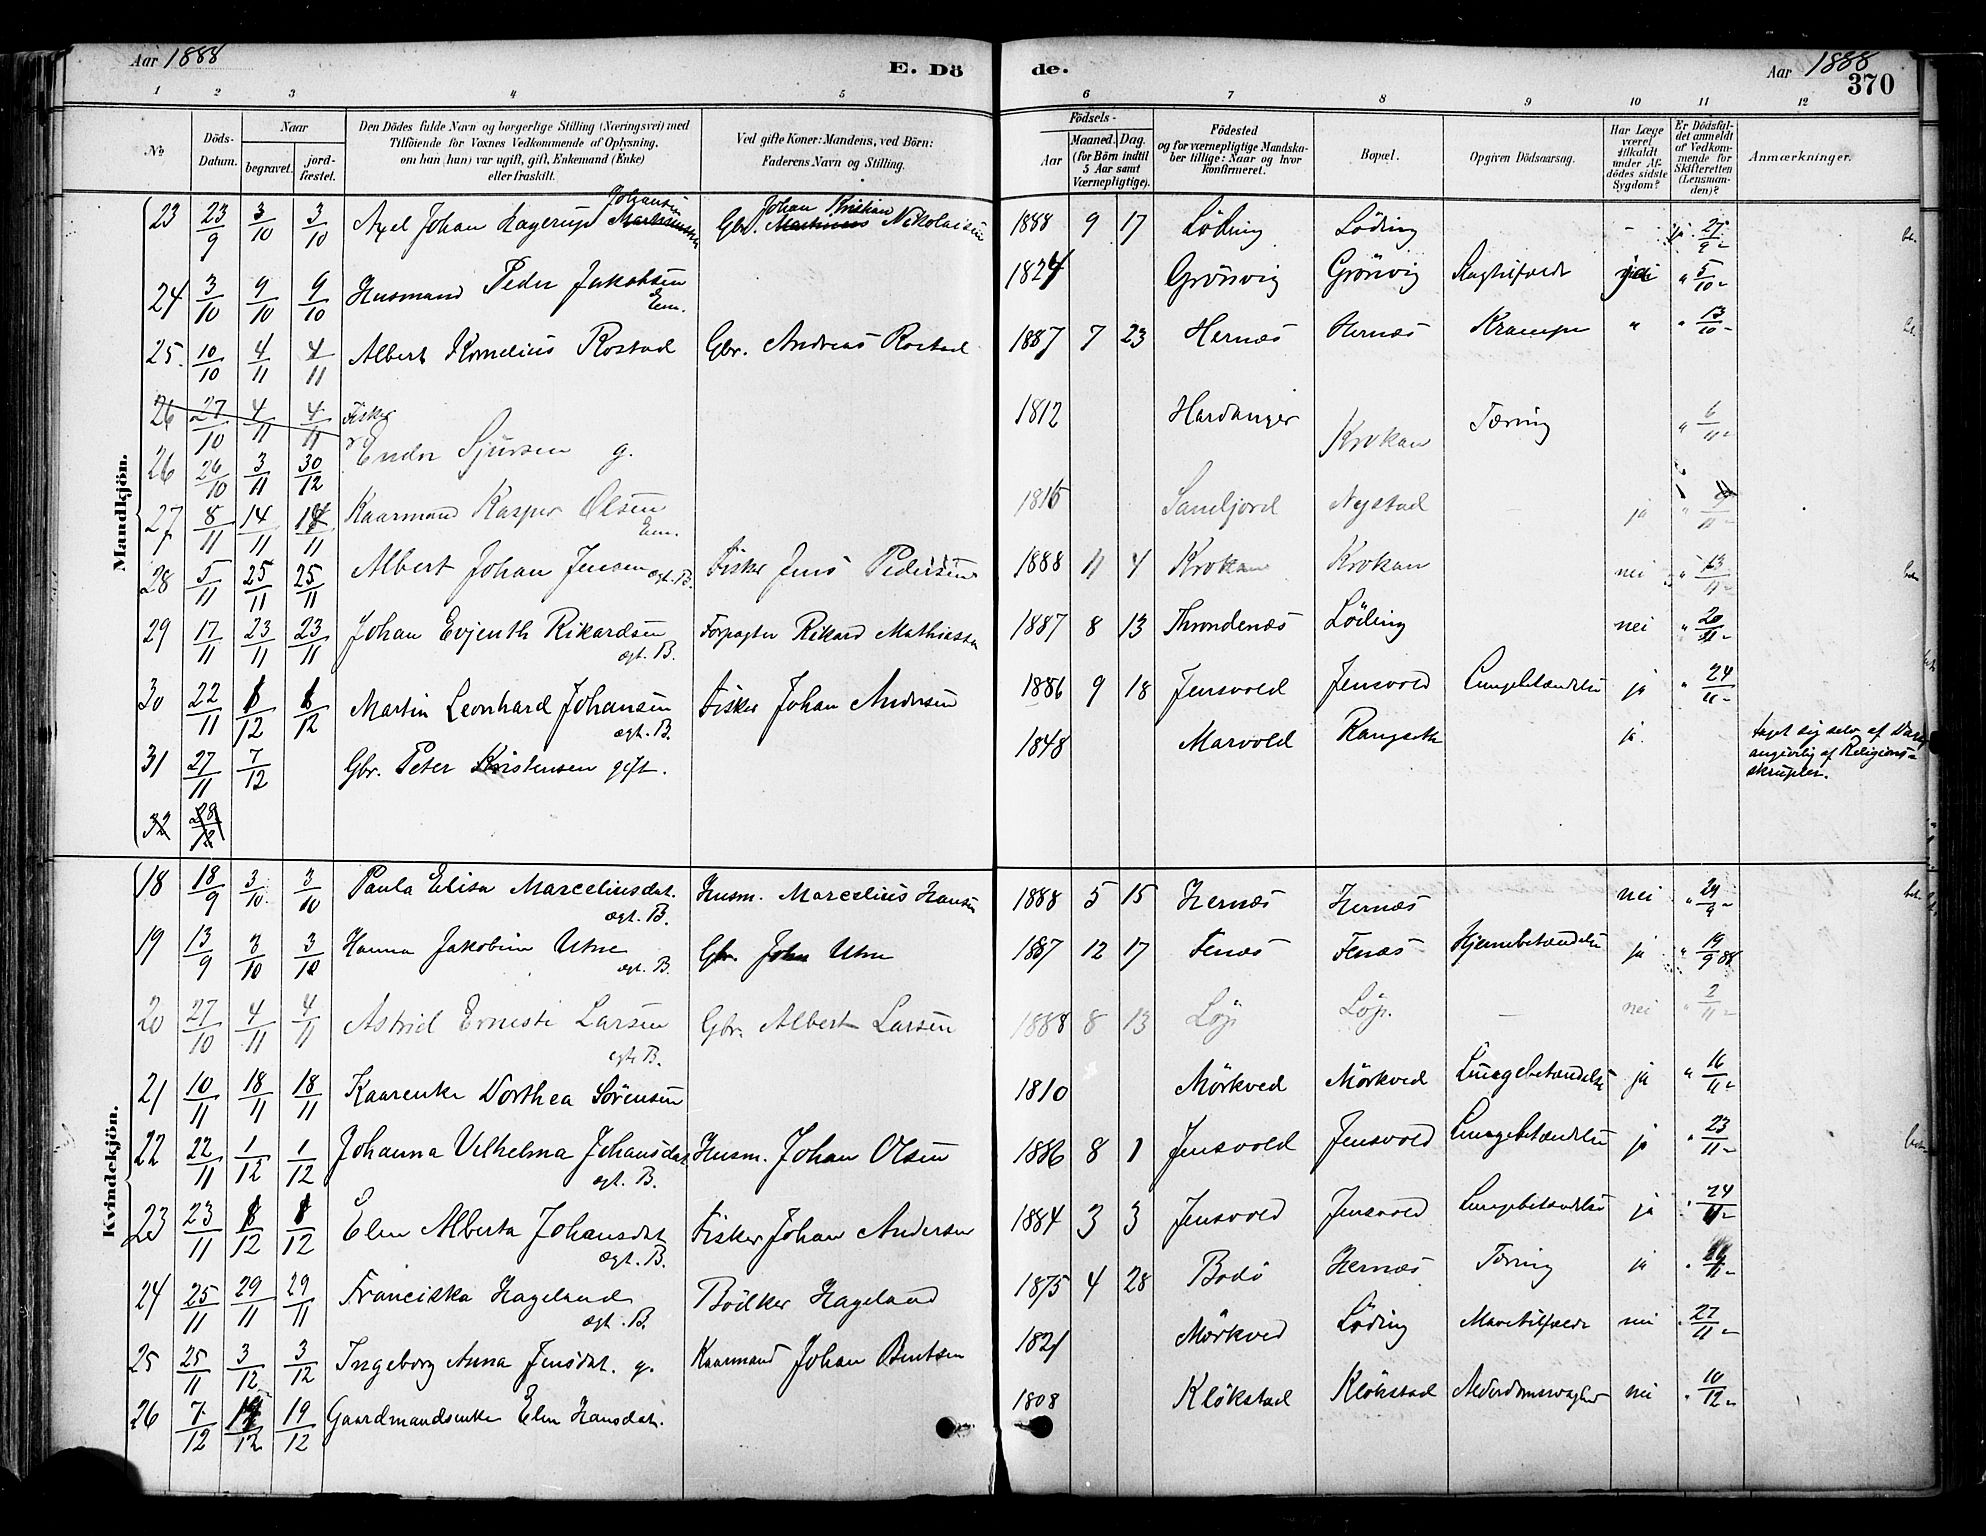 Aar 1888
E. Dö
de.
Aar 1888
370
1 2 3 4 5 6 7 8 9 10 11 12
No
Döds-Datum.
Naar
begravet.
jord-fæstet.
Den Dödes fulde Navn og borgerlige Stilling (Næringsvei) med
Tilföiende for Voxnes Vedkommende af Oplysning,
om han (hun) var ugift, gift, Enkemand (Enke)
eller fraskilt.
Ved gifte Koner: Mandens, ved Börn:
Faderens Navn og Stilling.
Födsels-
Aar
Maaned. Dag.
(for Börn indtil
5 Aar samt
Værnepligtige).
Födested
og for værnepligtige Mandska-
ber tillige: Naar og hvor
konfirmeret.
Bopæl.
Opgiven Dödsaarsag.
Har Læge
været
tilkaldt
under Af-
dödes sidste
Sygdom?
Er Dödsfal-
det anmeldt
af Vedkom-
mende for
Skifteretten
(Lensman-
den)?
Anmærkninger.
Mandkjön.
23 23/9 3/10 3/10 Axel Johan Lagerup Johansen Gbr. Johan Kristian Nikolaisen 1888 9 17 Löding Löding - ja 27/9
24 3/10 9/10 9/10 Husmand Peder Jakobsen Em. 1824 Grönvig Grönvig 5/10
25. 10/10 4/11 4/11 Albert Kornelius Rostad Gbr. Andreas Rostad 1887 7 23 Hernæs Hernæs Krampe " " 13/10
26 27/10 4/11 4/11 Fisker
26 26/10 3/11 30/12 Endre Sjursen g. 1812 Hardanger Krokan Tæring " 6/11
27 8/11 14/11 14/11 Kaarmand Kasper Olsen Em. 1815 Saudjord Nystad - ja
28 5/11 25/11 25/11 Albert Johan Jensen ægt. B. Fisker Jens Pedersen 1888 11 4 Krokan Krokan nei " 13/11
29 17/11 23/11 23/11 Johan Evjenth Rikardsen ægt. B. Forpagter Rikard Mathiassen 1887 8 13 Throndenæs Löding nei " 20/11
30 22/11 1/12 1/12 Martin Leonhard Johansen ægt. B. Fisker Johan Andersen 1886 9 18 Jensvold Jensvold Lungebetændelse ja " 24/11
31 27/11 7/12 Gbr. Peter Kristensen gift. 1848 Marvold Rangseth ja. taget sig selv af Dage
angivelig af Religions-
skrupler.
32 28/12
Kvindekjön.
18 18/9 3/10 3/10 Paula Elisa Marceliusdat. ægt. B. Husm. Marcelius Hansen 1888 5 15 Hernæs Hernæs nei " 24/9
19 13/9 3/10 3/10 Hanna Jakobine Utne ægt. B. Gbr. John Utne 1887 12 17 Fenæs Fenæs Hjernebetændelse ja " 19/9 88
20 27/10 4/11 4/11 Astrid Erneste Larsen ægt. B. Gbr. Albert Larsen 1888 8 13 Löp Löp. - nei " 2/11
21 10/11 18/11 18/11 Kaarenke Dorthea Sörensen 1810 Mörkved Mörkved Lungebetændelse ja " 16/11
22 22/11 1/12 1/12 Johanna Vilhelma Johansdat. ægt. B. Husm. Johan Olsen 1886 8 1 Jensvold Jensvold Lungebetændelse ja " 23/11
23 23/11 1/12 1/12 Elen Alberta Johansdat. ægt. B. Fisker Johan Andersen 1884 3 3 Jensvold Jensvold Lungebetændelse ja " 24/11
24 25/11 29/11 29/11 Franciska Hageland ægt. B. Bödker Hageland 1875 4 28 Bodö Hernæs Tæring ja
25 25/11 3/12 3/12 Ingeborg Anna Jensdat. g. Kaarmand Johan Bentsen 1821 Mörkved Löding Mavetilfælde nei " 27/11
26 7/12 19/12 19/12 Gaardmandsenke Elen Hansdat. 1808 Klökstad Klökstad Alderdomssvaghed nei " 10/12